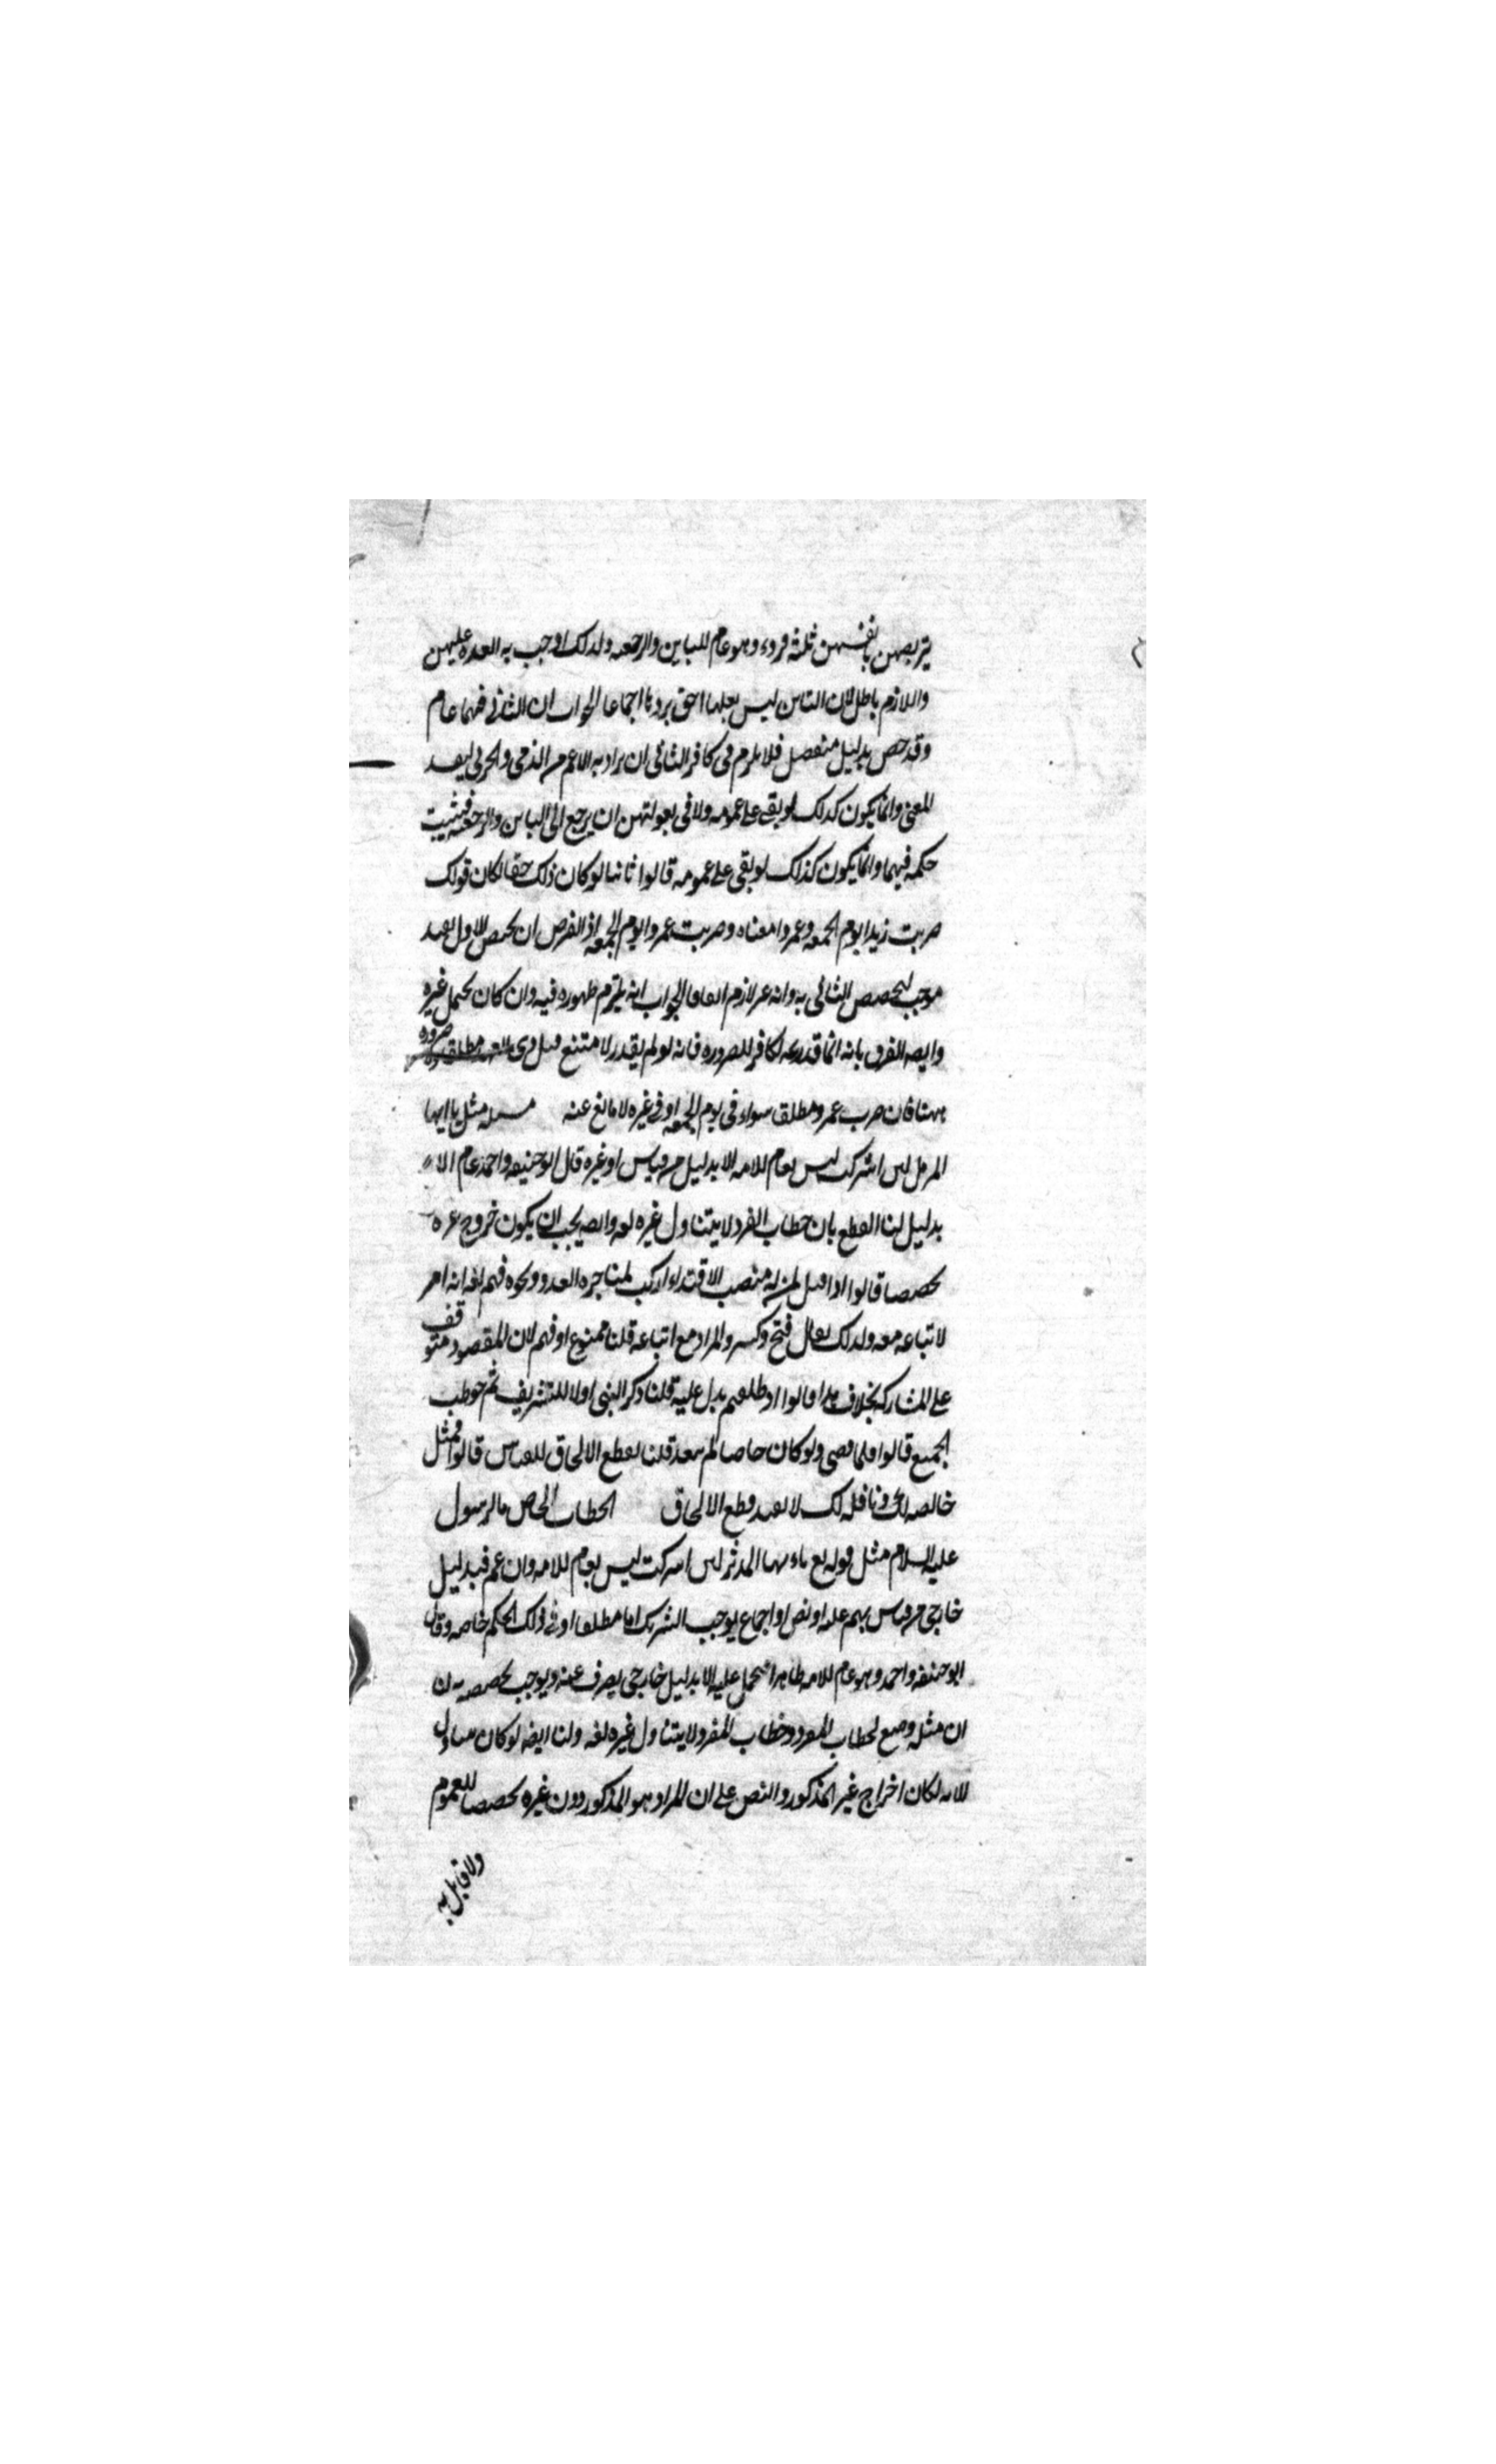 يتربصن بانفسهن ثلثة قروء وهو عام للباين والرجعه ولذلك اوجب به العدة عليهن
واللازم باطل لان الباين ليس بعلها احق بردها اجماعا الجواب ان الثاني فيهما عام
وقد خص بدليل منفصل فلا يلزم في كافر الثاني ان يراد به الاعم من الذمي والحربي ليفسد
المعنى وانما يكون كذلك لو بقي على عمومه ولا في بعولتهن ان يرجع الى الباين والرجعية فيثبت
حكمه فيهما وانما يكون كذلك لو بقي على عمومه قالوا ثانيا لو كان ذلك حقا لكان قولك
ضربت زيدا يوم الجمعه وعمروا معناه وضربت عمروا يوم الجمعه اذ الفرض ان تخصص الاول بقيد
موجب لتخصص الثاني به وانه غير لازم اتفاقا الجواب انه يلتزم ظهوره فيه وان كان يحتمل غيره
وايضه الفرق بانه انما قدر بكافر للضروره فانه لو لم يقدر لامتنع قتل ذي العهد مطلقا ولا ضروره
ههنا فان ضرب عمرو مطلق سواء في يوم الجمعه او في غيره لا مانع عنه مسئله مثل يا ايها
المزمل لئن اشركت ليس بعام للامه الا بدليل من قياس او غيره قال ابو حنيفه واحمد عام الا
بدليل لنا القطع بان خطاب المفرد لا يتناول غيره لغه وايضه يجب ان يكون خروج غيره
تخصصا قالوا اذا قيل لمن له منصب الاقتداء اركب لمناجزه العدو ونحوه فهم لغه انه امر
لاتباعه معه ولذلك يقال فتح وكسر والمراد مع اتباعه قلنا ممنوع او فهم لان المقصود متوقف
على المشاركه بخلاف هذا قالوا اذا طلقتم يدل عليه قلنا ذكر النبي اولا للتشريف ثم خوطب
الجميع قالوا فلما قضى ولو كان خاصا لم يتعد قلنا نقطع الالحاق للقياس قالوا فمثل
خالصه لك ونافله لك لا يفيد قطع الالحاق الخطاب الخاص بالرسول
عليه السلام مثل قوله تع يا ايها المدثر لئن اشركت ليس بعام للامه وان عم فبدليل
خارجي من قياس بهم عليه او نص او اجماع يوجب التشريك اما مطلقا او في ذلك الحكم خاصه وقال
ابو حنيفه واحمد وهو عام للامه ظاهرا يحمل عليه الا بدليل خارجي يصرف عنه ويوجب تخصصه لنا
ان مثله وضع لخطاب المفرد وخطاب المفرد لا يتناول غيره لغه ولنا ايضه لو كان يتناول
للامه لكان اخراج غير المذكور والنص على ان المراد هو المذكور دون غيره تخصصا للعموم
ولا قايل به